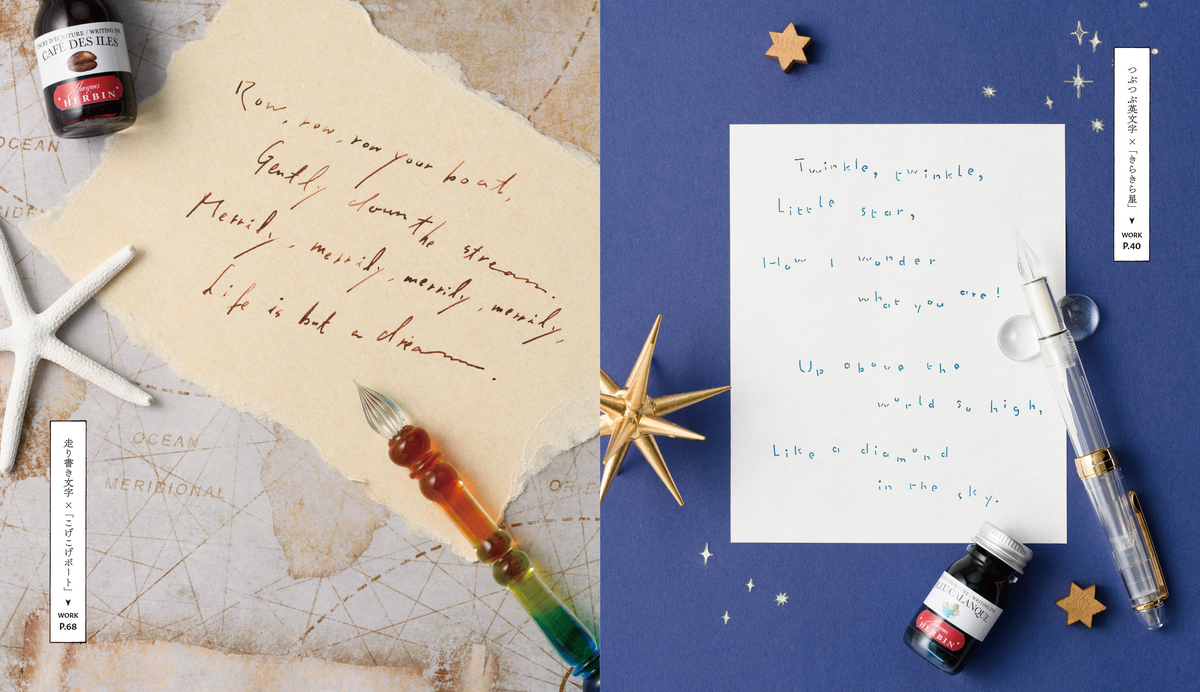 ENCRE D'ÉCRITURE / WRITING INK
CAFÉ DES ILES
Jacques
HERBIN
OCEAN
Row, row, row your boat,
Gently down the stream.
Merrily, merrily, merrily, merrily,
Life is but a dream.
OCEAN
MERIDIONAL
走り書き文字×「こげこげボート」
WORK
P.68
4
つぶつぶ英文字×「きらきら星」
WORK
P.40
Twinkle, twinkle,
Little star,
How I wonder
what you are!
Up above the
world so high,
Like a diamond
in the sky.
BLEU CALANQUE
HERBIN
5